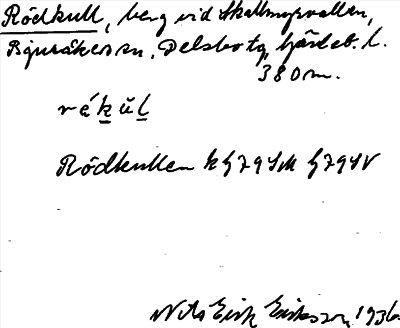 Rödkull, berg vid Skallmyrvallen,
Bjuråkers sn, Delsbo tg, Gävleb. l.
380 m.
rákŭl
Rödkullen k G 79 SV
Nils Erik Eriksson 1936.